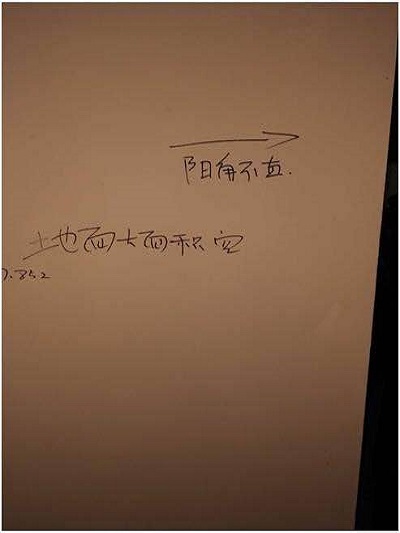 阳角不直.
地面大面积空